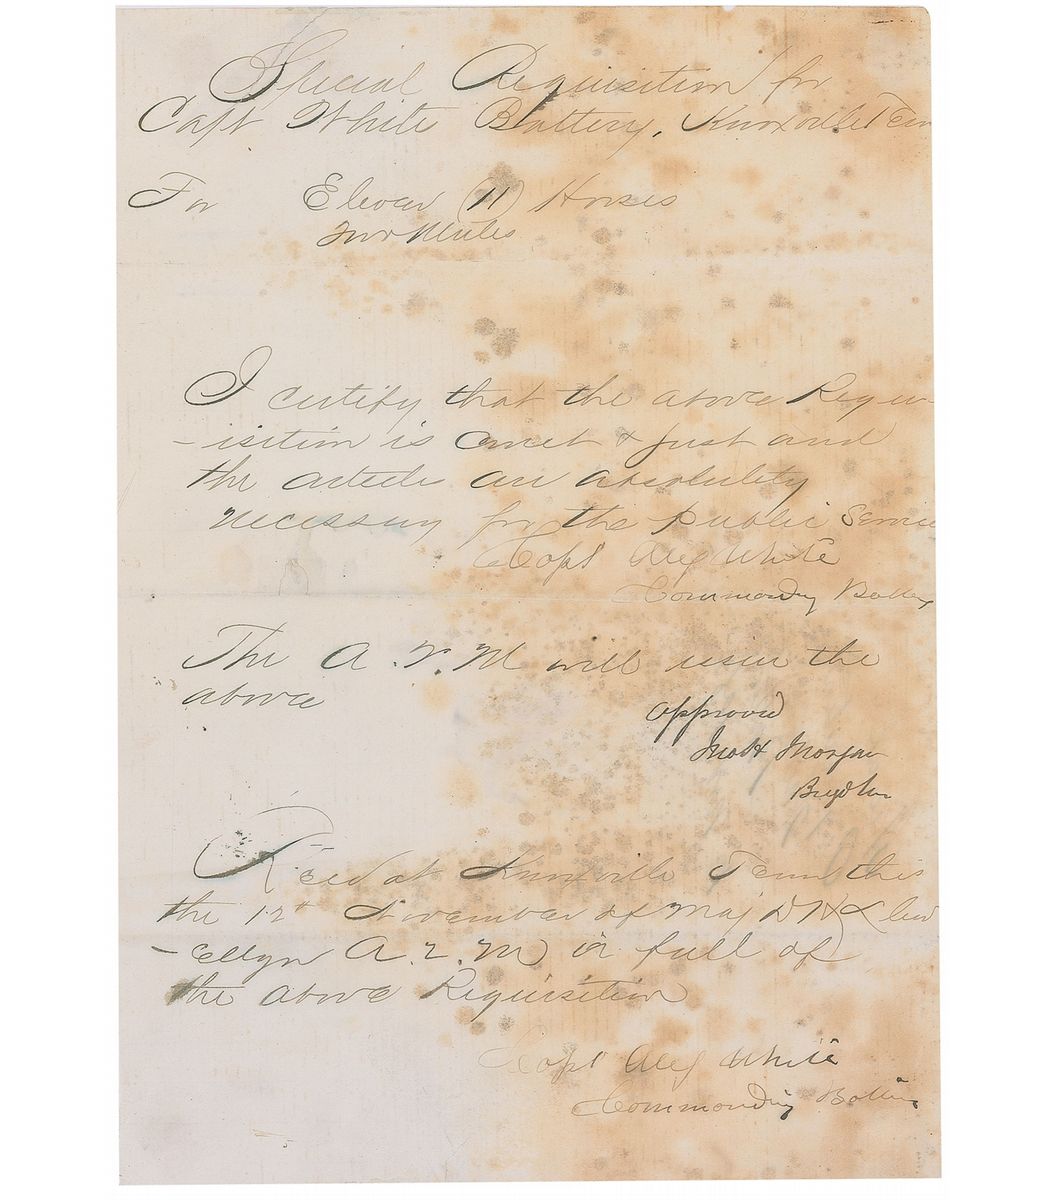 Special Requisition for
Capt White Battery, Knoxville Tenn
For Eleven (11) Horses
Two Mules
I certify that the above Requ-
-isition is correct & just and
the articles are absolutely
necessary for the public Service
Capt Alf White
Commanding Battery
The A. Q. M will issue the
above
Approved
Jno H Morgan
Brig Gen
Recd at Knoxville Tenn this
the 12th November of Maj D H Llew
-ellyn A. Q. M in full of
the above Requisition
Capt Alf White
Commanding Battery